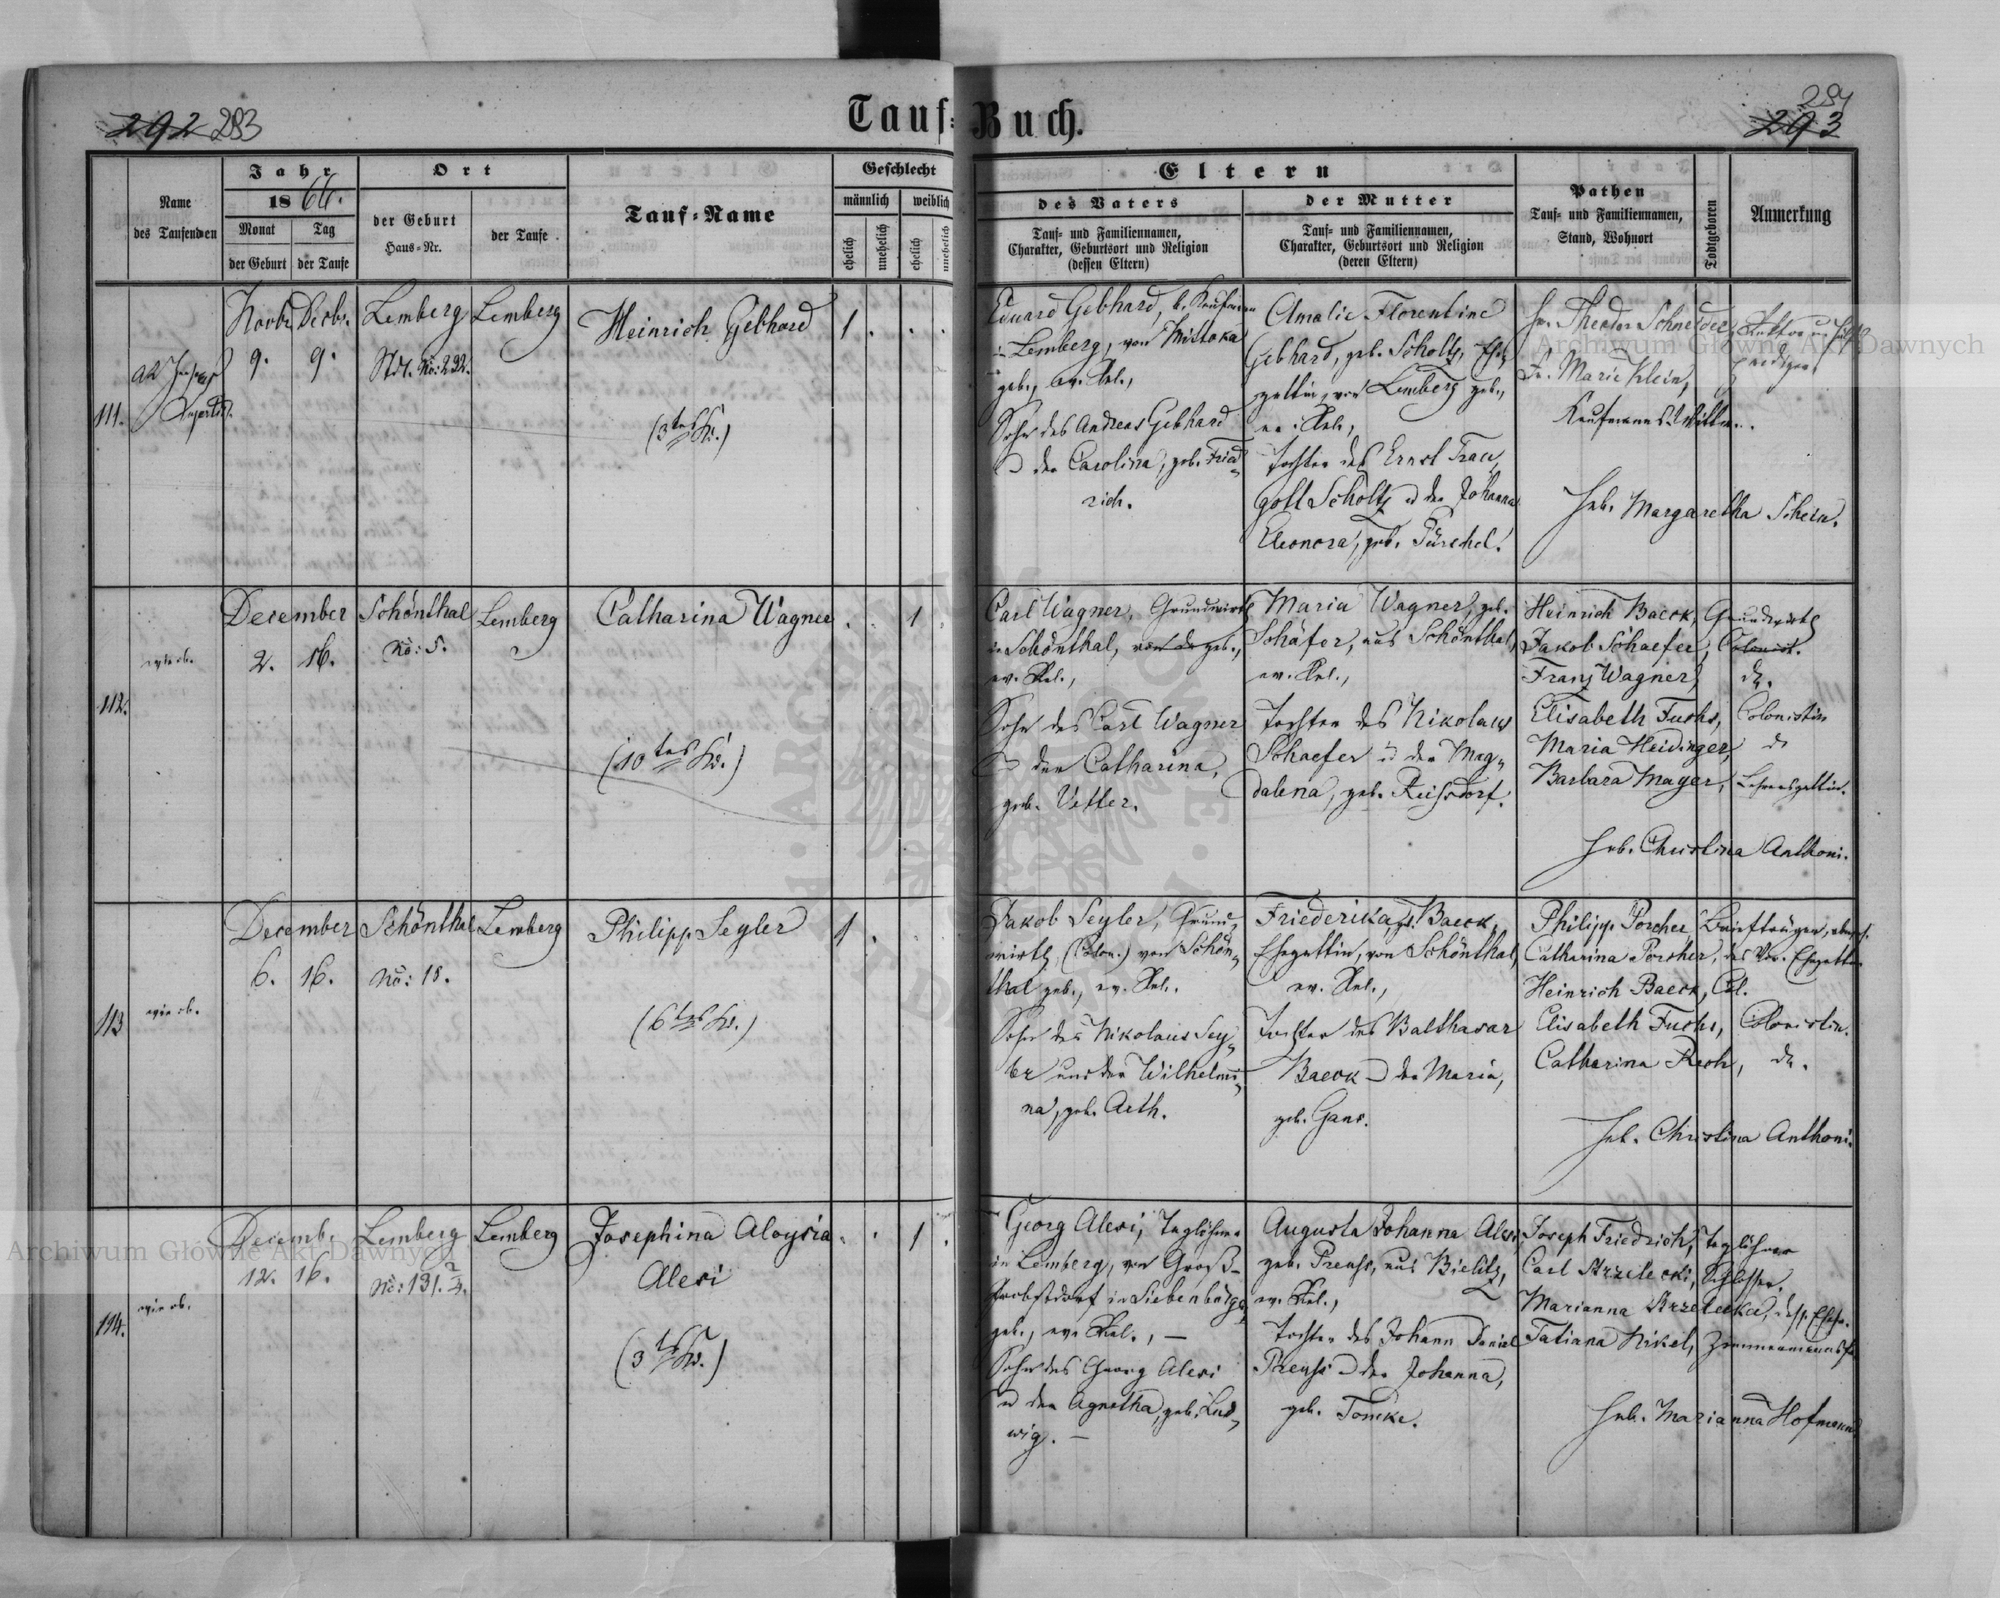 292 283
Tauf-Buch.
284
293
Name
des Taufenden
Jahr
1866.
Monat
Tag
der Geburt
der Taufe
Ort
der Geburt
Haus-Nr.
der Taufe
Tauf-Name
Geschlecht
männlich
weiblich
ehelich
unehelich
ehelich
unehelich
Eltern
des Vaters
Tauf- und Familiennamen,
Charakter, Geburtsort und Religion
(dessen Eltern)
der Mutter
Tauf- und Familiennamen,
Charakter, Geburtsort und Religion
(deren Eltern)
Pathen
Tauf- und Familiennamen,
Stand, Wohnort
Todtgeboren
Anmerkung
111.
Novbr. Decbr.
9. 9.
Lemberg
Stdt. No: 292.
Lemberg
Heinrich Gebhard
(3tes Kd.)
1
Eduard Gebhard,
in Lemberg, von
geb., ev. Rel.,
Sohn des Andreas Gebhard
u der Carolina, geb. Fried-
rich.
Amalie Florentine
Gebhard, geb. Scholtz, Ehe-
gattin, von Lemberg geb.,
ev. Rel.,
Tochter des Ernst Trau-
gott Scholtz u der Johanna
Eleonora, geb. Püschel.
Hr. Theodor Schneider,
Fr. Marie Klein,
Kaufmanns
Heb. Margaretha Schein.
112.
wie ob.
December
2. 16.
Schönthal
No: 5.
Lemberg
Catharina Wagner
(10tes Kd.)
1
Carl Wagner, Grundwirth
in Schönthal, von da geb.,
ev. Rel.,
Sohn des Carl Wagner
u der Catharina,
geb. Vetter.
Maria Wagner, geb.
Schäfer, aus Schönthal,
ev. Rel.,
Tochter des Nikolaus
Schaefer u der Mag-
dalena, geb. Reichsdorf.
Heinrich Baeck, Grundwirth
Jakob Schaefer, Colonist.
Franz Wagner, do.
Elisabeth Fuchs, Colonistin
Maria Heidinger, do
Barbara Mayer, Lehrersgattin.
Heb. Christina Anthoni.
113
wie ob.
December
6. 16.
Schönthal
No: 18.
Lemberg
Philipp Segler
(6tes Kd.)
1
Jakob Segler, Grund-
wirth, (Colon.) von Schön-
thal geb., ev. Rel.,
Sohn des Nikolaus Seg-
ler und der Wilhelmi-
na, geb. Aeth.
Friederika g. Baeck,
Ehegattin, von Schönthal,
ev. Rel.,
Tochter des Balthasar
Baeck u der Maria,
geb. Gans.
Philipp Porcher, Briefträger,
Catharina Porcher, des Vor. Ehegattin
Heinrich Baeck, Col.
Elisabeth Fuchs, Colonistin.
Catharina Rech, do.
Heb. Christina Anthoni.
114.
wie ob.
Decemb.
12. 16.
Lemberg
No: 131. 2/4.
Lemberg
Josephina Aloysia
Alesi
(3tes Kd.)
1
Georg Alesi, Taglöhner
in Lemberg, von Groß-
Probstdorf in Siebenbürgen
geb., ev. Rel., —
Sohn des Georg Alesi
u der Agnetha, geb. Lud-
wig. —
Augusta Johanna Alesi,
geb. Preuss, aus Bielitz,
ev. Rel.,
Tochter des Johann Daniel
Preuss u der Johanna,
geb. Tomcke.
Joseph Friedrich, Taglöhner
Carl Strzelecki, Schlosser.
Marianna Strzelecka,
Tatiana Nikel,
Heb. Marianna Hofmann.
Archiwum Główne Akt Dawnych
Archiwum Główne Akt Dawnych